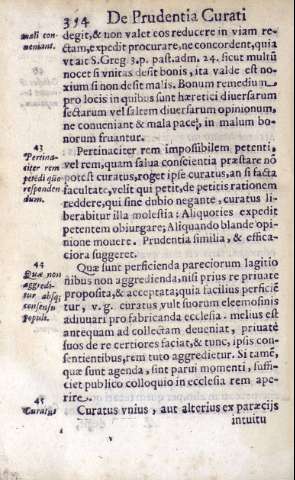 394 De Prudentia Curati
mali con-
ueniant.
degit, & non valet eos reducere in viam re-
ctam, expedit procurare, ne concordent, quia
vt ait S. Greg. 3. p. past. adm. 24. sicut multũ
nocet si vnitas desit bonis, ita valde est no-
xium si non desit malis. Bonum remedium
pro locis in quibus sunt hæretici diuersarum
sectarum vel saltem diuersarum opinionum,
ne conueniant & mala pace, in malum bo-
norum fruantur.
43
Pertina-
citer rem
petẽti quo
responden
dum.
Pertinaciter rem impossibilem petenti,
vel rem, quam salua conscientia præstare nõ
potest curatus, roget ipse curatus, an si facta
facultate, velit qui petit, de petitis rationem
reddere, qui sine dubio negante, curatus li-
berabitur illa molestia: Aliquoties expedit
petentem obiurgare; Aliquando blande opi-
nione mouere. Prudentia similia, & effica-
ciora suggeret.
44
Quæ non
aggredi-
tur absq;
consensu
populi.
Quæ sunt perficienda pareciorum lagitio
nibus non aggredienda, nisi prius re priuate
proposita, & acceptata; quia facilius perficiẽ
tur, v. g. curatus vult suorum eleemosinis
adiuuari pro fabricanda ecclesia: melius est
antequam ad collectam deueniat, priuatè
suos de re certiores faciat, & tunc, ipsis con-
sentientibus, rem tuto aggredietur. Si tamẽ,
quæ sunt agenda, sint parui momenti, suffi-
ciet publico colloquio in ecclesia rem ape-
rire.
45
Curatus
Curatus vnius, aut alterius ex paræcijs
intuitu